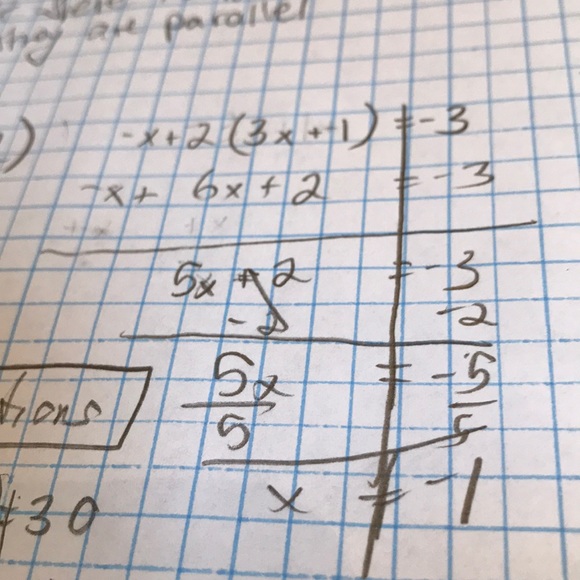 they are parallel
-x+2(3x+1) = -3
-x+ 6x+2 = -3
5x + 2 = -3
-2 -2
5x = -5
5 5
x = -1
tions
+30